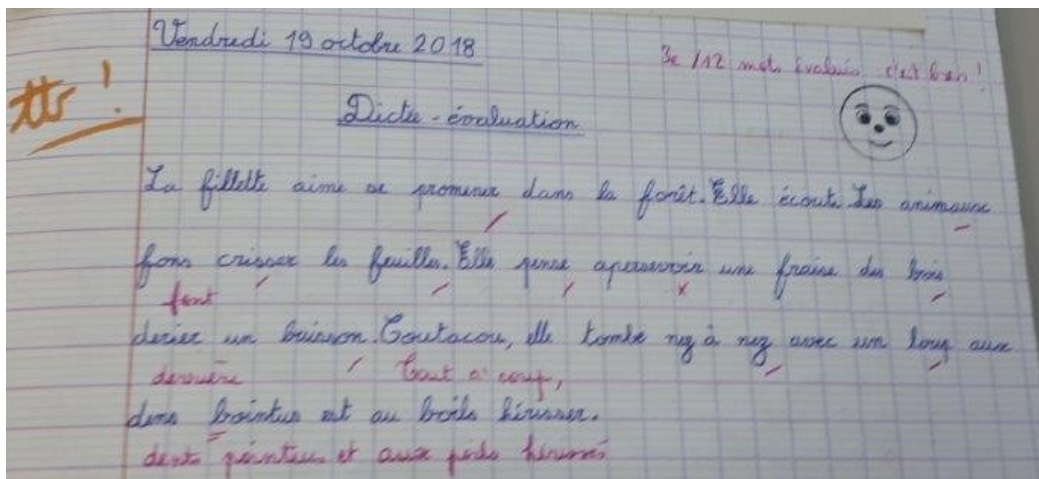 Vendredi 19 octobre 2018
/12 mots évalués c'est bien !
ttr !
Dictée - évaluation
La fillette aime se promener dans la forêt. Elle écoute. Les animaux
fons crisser les feuilles. Elle pense apersevoir une fraise des bois
font
derier un buisson. Toutacou, elle tombe nez à nez avec un loup aux
derrière Tout à coup,
dens bointus et au boils hérisser.
dents pointues et aux poils hérissés